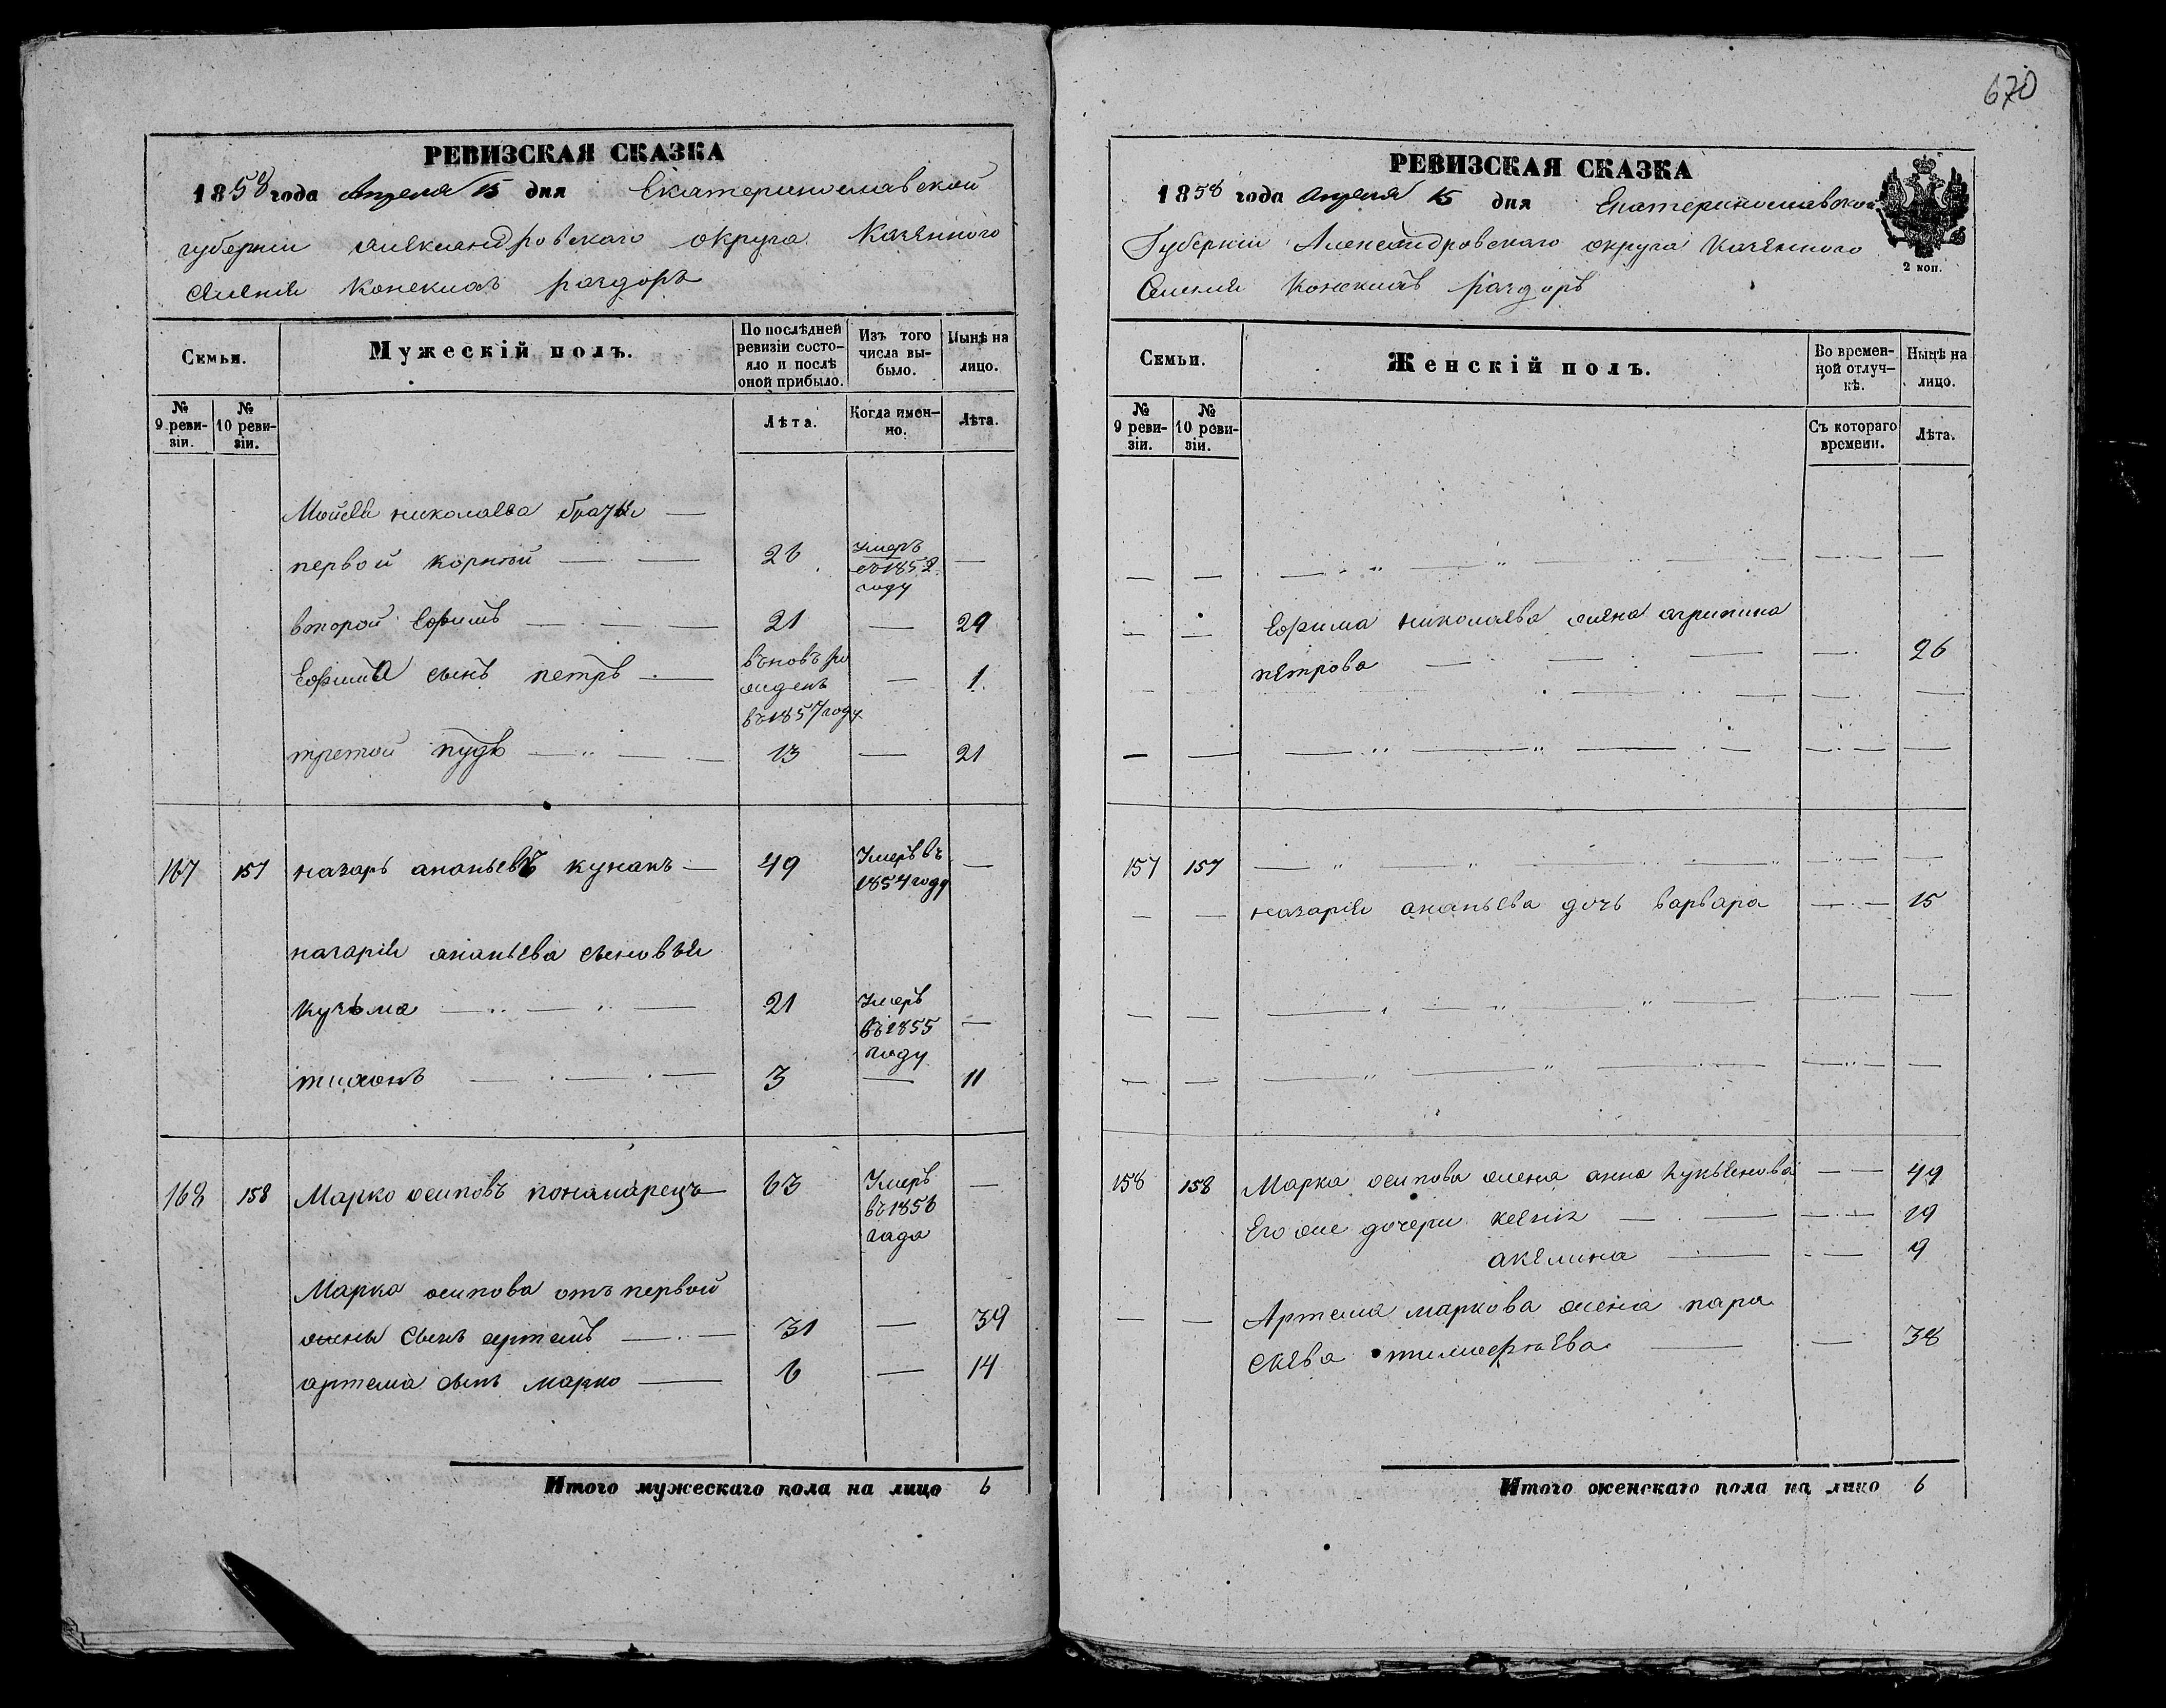 РЕВИЗСКАЯ СКАЗКА
1858 года Апреля 15 дня Екатеринославской
губернии александровскаго округа Казенного
селения Конскихъ раздоръ
Семьи.
Мужескій полъ.
По послѣдней ревизіи состояло и послѣ оной прибыло.
Изъ того числа выбыло.
Нынѣ на лицо.
№ 9 ревизіи.
№ 10 ревизіи.
Лѣта.
Когда именно.
Лѣта.
Мойсея николаева братья —
первой корней — — 26 умеръ въ 1852 году —
второй Ефимъ — — — 21 — 29
Ефима сынъ петръ — вновь рожденъ въ 1857 году — 1
третой пудъ — — — 13 — 21
167 157 назаръ ананьевъ кунакъ — 49 Умеръ въ 1854 году —
назарія ананьева сыновья
Кузьма — — — 21 Умеръ въ 1855 году —
тихонъ — — — 3 — 11
168 158 Марко осиповъ понамарецъ — 63 Умеръ въ 1856 года —
Марка осипова отъ первой
жены сынъ артемъ — — 31 — 39
артема сынъ марко — 6 — 14
Итого мужескаго пола на лицо 6
670
РЕВИЗСКАЯ СКАЗКА
1858 года апреля 15 дня Екатеринославской
Губерніи Александровскаго округа Казенного
Селенія Конскихъ раздоръ
2 коп.
Семьи.
Женскій полъ.
Во временной отлучкѣ.
Нынѣ на лицо.
№ 9 ревизіи.
№ 10 ревизіи.
Съ котораго времени.
Лѣта.
Ефима николаева жена агрипина
петрова — — — — 26
157 157 — — — — — —
— — назарія ананьева дочь варвара — — 15
158 158 Марка осипова жена анна лукьянова — — 49
Его же дочери ксенія — — — — 19
акелина — — — 9
— — Артема маркова жена пара
скева тимофеева — — 38
Итого женскаго пола на лицо 6